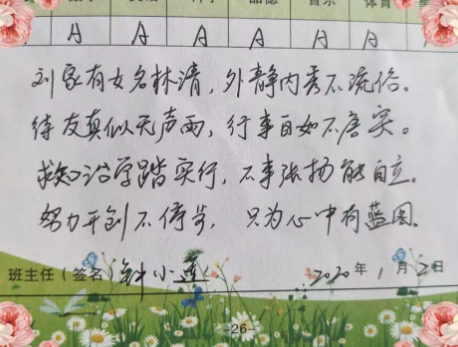 音乐 体育
A A A A A A
刘家有女名林清，外静内秀不流俗。
待友真似无声雨，行事自如不唐突。
求知治学踏实行，不事张扬能自立。
努力开创不停步，只为心中有蓝图。
班主任（签名）钟小莲 2020年1月2日
-26-